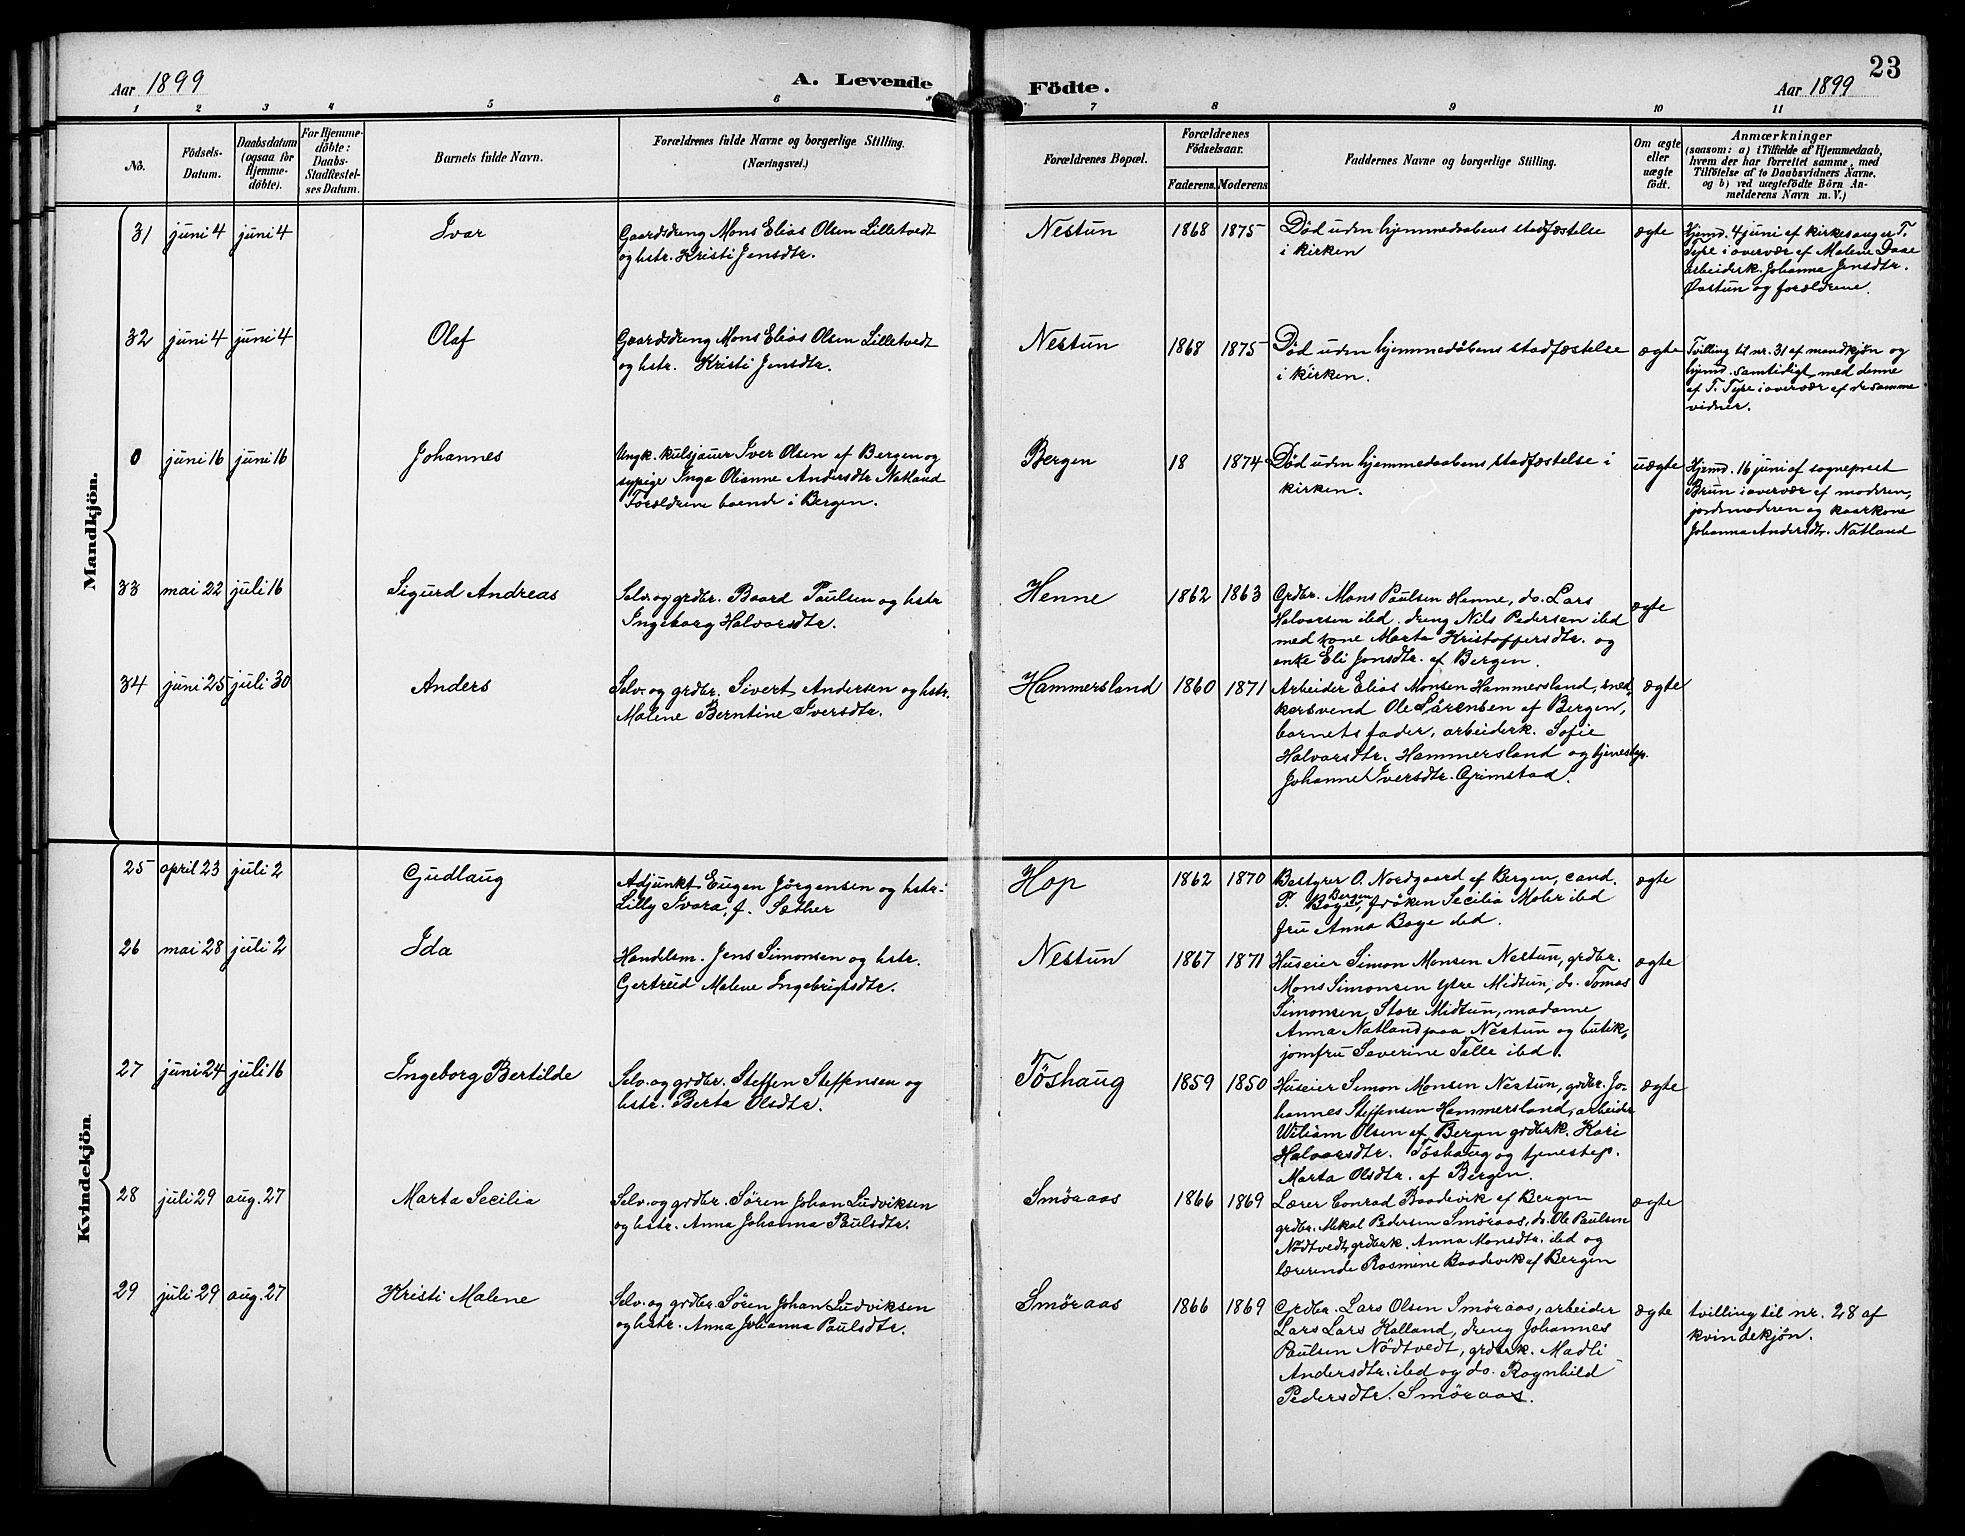 Aar 1899
A. Levende
Födte.
Aar 1899
23
1 2 3 4 5 6 7 8 9 10 11
No.
Födsels-
Datum.
Daabsdatum
(ogsaa for
Hjemme-
döbte).
For Hjemme-
döbte:
Daabs-
Stadfæstel-
ses Datum.
Barnets fulde Navn.
Forældrenes fulde Navne og borgerlige Stilling.
(Næringsvei.)
Forældrenes Bopæl.
Forældrenes
Födselsaar.
Faderens. Moderens
Faddernes Navne og borgerlige Stilling.
Om ægte
eller
uægte
født.
Anmærkninger
(saasom: a) i Tilfælde af Hjemmedaab,
hvem der har forrettet samme, med
Tilföielse af to Daabsvidners Navne.
og b) ved uægtefödte Börn An-
melderens Navn m. V.)
Mandkjön.
31 juni 4 juni 4
Ivar
Gaardsdreng Mons Elias Olsen Lilletvedt
og hstr. Kristi Jensdtr.
Nestun
1868 1875
Död uden hjemmedaabens stadfæstelse
i kirken
ægte
Hjemd. 4 juni af kirkesanger T.
Tyse i overvær af Malene Daae
arbeiderk. Johanna Jensdtr.
Øvstun og forældrene.
32 juni 4 juni 4
Olaf
Gaardsdreng Mons Elias Olsen Lilletvedt
og hstr. Kristi Jensdtr.
Nestun
1868 1875
Död uden hjemmedåbens stadfæstelse
i kirken.
ægte
Tvilling til nr. 31 af mandkjön og
hjemd. samtidigt med denne
af T. Tyse i overvær af de samme
vidner.
0 juni 16 juni 16
Johannes
Ungk. kulsjauer Iver Olsen af Bergen og
sypige Inga Olianne Andersdtr Natland
Forældrene boende i Bergen.
Bergen
18 1874
Död uden hjemmedaabens stadfæstelse i
kirken.
uægte
Hjemd. 16 juni af sogneprest
Brun i overvær af moderen,
jordmoderen og kaarkone
Johanna Andersdtr. Natland
33 mai 22 juli 16
Sigurd Andreas
Selv. og grdbr. Baard Paulsen og hstr
Ingeborg Halvorsdtr.
Henne
1862 1863
Grdbr. Mons Paulsen Henne, do. Lars
Halvorsen ibd. dreng Nils Pedersen ibd
med kone Marta Kristoffersdtr. og
enke Eli Jonsdtr. af Bergen.
ægte
34 juni 25 juli 30
Anders
Selv. og grdbr. Sivert Andersen og hstr.
Malene Berntine Iversdtr.
Hammersland
1860 1871
Arbeider Elias Monsen Hammersland, sned-
kersvend Ole Sörensen af Bergen,
barnets fader, arbeiderk. Sofie
Halvorsdtr. Hammersland og tjenestep.
Johanne Iversdtr. Grimstad.
ægte
Kvindekjön
25 april 23 juli 2
Gudlaug
Adjunkt Eugen Jörgensen og hstr.
Lilly Svara, f. Sæther
Hop
1862 1870
Bestyrer O. Nordgaard af Bergen, cand.
P. Boye, Bergen, fröken Secilia Mohr ibd
fru Anna Boye ibd.
ægte
26 mai 28 juli 2
Ida
Handelsm. Jens Simonsen og hstr.
Gertrud Malene Ingebrigtsdtr.
Nestun
1867 1871
Huseier Simon Monsen Nestun, grdbr.
Mons Simonsen ytre Midtun, do. Tomas
Simonsen, Store Midtun, madame
Anna Natland paa Nestun og butik-
jomfru Severine Talle ibd.
ægte
27 juni 24 juli 16
Ingeborg Bertilde
Selv. og grdbr. Steffen Steffensen og
hstr. Berta Olsdtr.
Töshaug
1859 1850
Huseier Simon Monsen Nestun, grdbr. Jo-
hannes Steffensen Hammersland, arbeider
Wiliam Olsen af Bergen grdbrk. Kari
Halvorsdtr. Töshaug og tjenestep.
Marta Olsdtr. af Bergen.
ægte
28 juli 29 aug. 27
Marta Secilia
Selv. og grdbr. Sören Johan Ludviksen
og hstr. Anna Johanna Paulsdtr.
Smöraas
1866 1869
Lærer Conrad Baadsvik af Bergen
grdbr. Mikal Pedersen Smöraas, do. Ole Paulsen
Nödtvedt, grdbrk. Anna Monsdtr. ibd og
lærerinde Rasmine Baadsvik af Bergen
ægte
29 juli 29 aug. 27
Kristi Malene
Selv. og grdbr. Sören Johan Ludviksen
og hstr. Anna Johanna Paulsdtr.
Smöraas
1866 1869
Grdbr. Lars Olsen Smöraas, arbeider
Lars Lars Kalland, dreng Johannes
Paulsen Nödtvedt, grdbrk. Madli
Andersdtr. ibd og do. Ragnhild
Pedersdtr. Smöraas.
ægte
tvilling til nr. 28 af
kvindekjön.